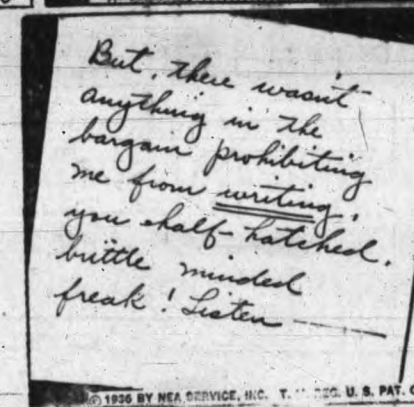 But, there wasn't
anything in the
bargain prohibiting
me from writing,
you half-hatched,
brittle minded
freak! Listen
© 1936 BY NEA SERVICE, INC. T. M. REG. U. S. PAT. O